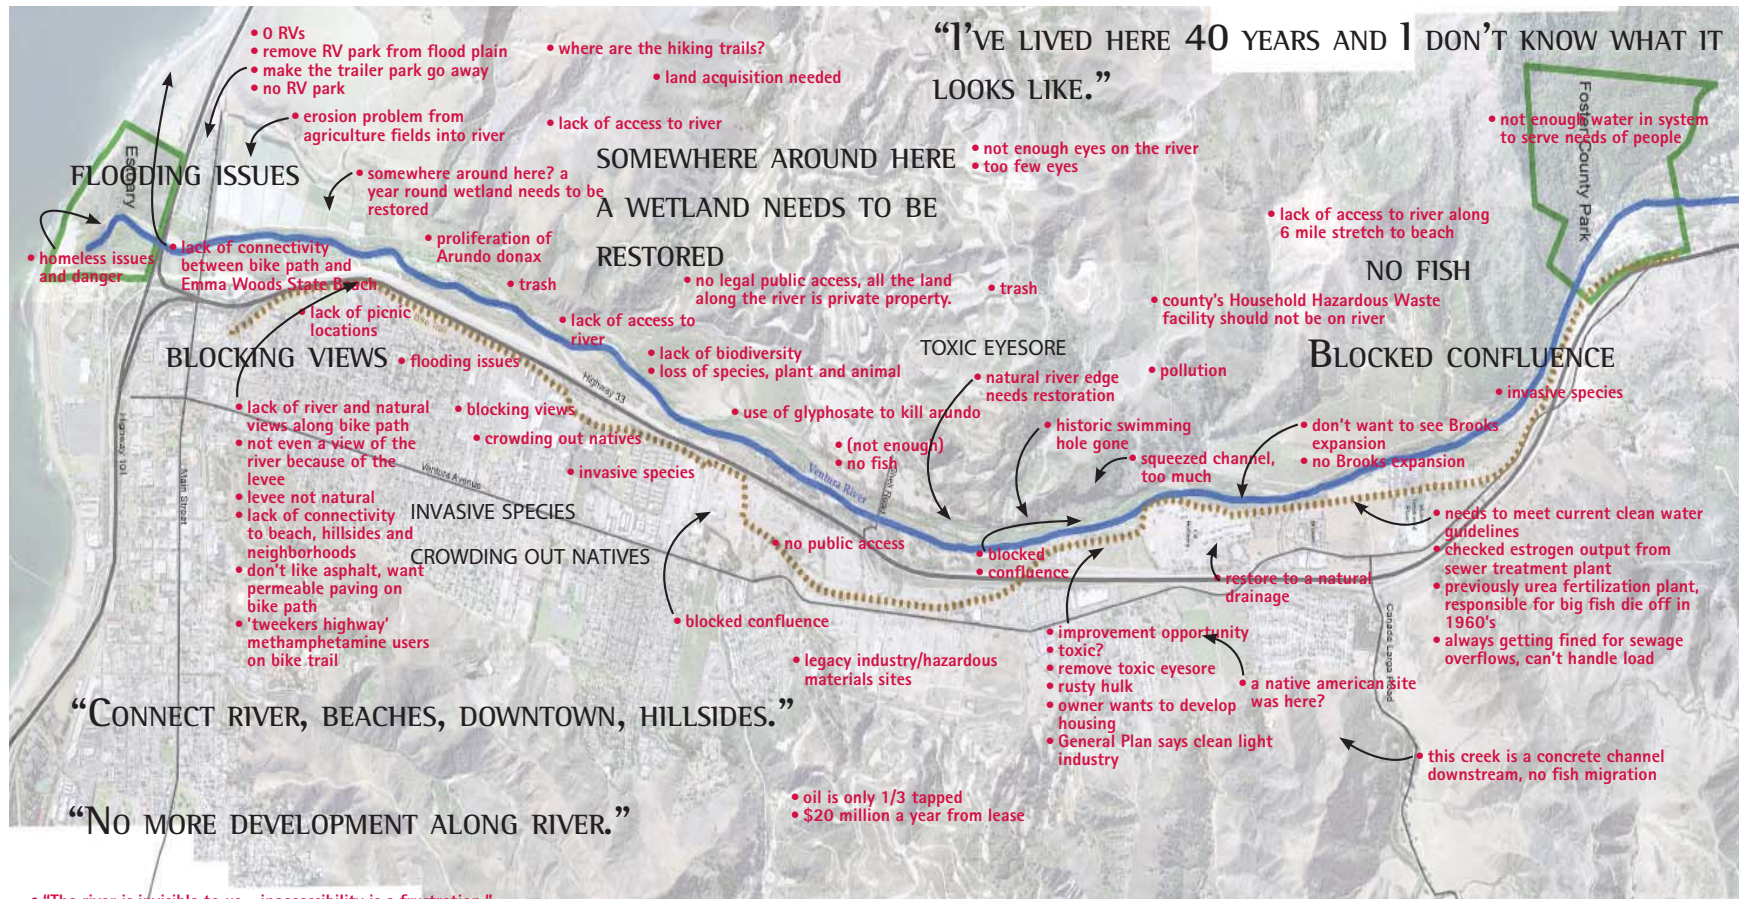 “I’VE LIVED HERE 40 YEARS AND I DON’T KNOW WHAT IT
LOOKS LIKE.”
• 0 RVs
• remove RV park from flood plain
• make the trailer park go away
• no RV park
• where are the hiking trails?
• land acquisition needed
• erosion problem from
agriculture fields into river
• lack of access to river
Foster County Park
• not enough water in system
to serve needs of people
Estuary
FLOODING ISSUES
• somewhere around here? a
year round wetland needs to be
restored
SOMEWHERE AROUND HERE
A WETLAND NEEDS TO BE
RESTORED
• not enough eyes on the river
• too few eyes
• lack of access to river along
6 mile stretch to beach
NO FISH
• homeless issues
and danger
• lack of connectivity
between bike path and
Emma Woods State Beach
• proliferation of
Arundo donax
• trash
• no legal public access, all the land
along the river is private property.
• trash
• county's Household Hazardous Waste
facility should not be on river
• lack of picnic
locations
Bike Trail
• lack of access to
river
BLOCKING VIEWS
• flooding issues
• lack of biodiversity
• loss of species, plant and animal
TOXIC EYESORE
BLOCKED CONFLUENCE
• natural river edge
needs restoration
• pollution
• invasive species
Highway 33
• lack of river and natural
views along bike path
• not even a view of the
river because of the
levee
• levee not natural
• lack of connectivity
to beach, hillsides and
neighborhoods
• don't like asphalt, want
permeable paving on
bike path
• 'tweekers highway'
methamphetamine users
on bike trail
• blocking views
• crowding out natives
• invasive species
• use of glyphosate to kill arundo
• (not enough)
• no fish
• historic swimming
hole gone
• squeezed channel,
too much
• don't want to see Brooks
expansion
• no Brooks expansion
Highway 101
Main Street
Ventura Avenue
Ventura River
INVASIVE SPECIES
CROWDING OUT NATIVES
• no public access
• blocked
• confluence
• restore to a natural
drainage
• needs to meet current clean water
guidelines
• checked estrogen output from
sewer treatment plant
• previously urea fertilization plant,
responsible for big fish die off in
1960's
• always getting fined for sewage
overflows, can't handle load
• blocked confluence
• legacy industry/hazardous
materials sites
• improvement opportunity
• toxic?
• remove toxic eyesore
• rusty hulk
• owner wants to develop
housing
• General Plan says clean light
industry
• a native american site
was here?
Canada Larga Road
• this creek is a concrete channel
downstream, no fish migration
“CONNECT RIVER, BEACHES, DOWNTOWN, HILLSIDES.”
• oil is only 1/3 tapped
• $20 million a year from lease
“NO MORE DEVELOPMENT ALONG RIVER.”
• "The river is invisible to us - inaccessibility is a frustration."